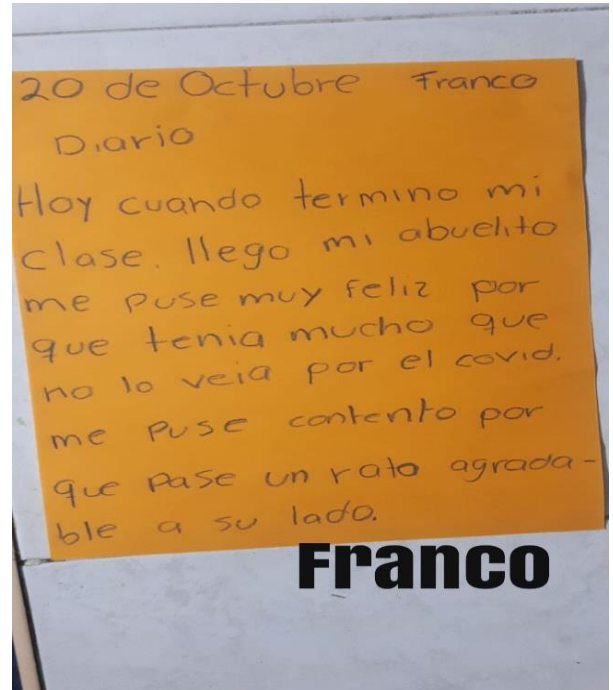 20 de Octubre Franco
Diario
Hoy cuando termino mi
clase. llego mi abuelito
me puse muy feliz por
que tenia mucho que
no lo veia por el covid.
me puse contento por
que pase un rato agrada-
ble a su lado.
Franco